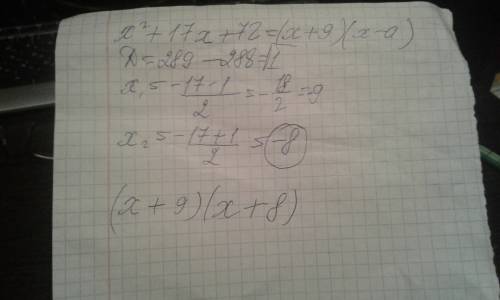 x² + 17x + 72 = (x+9)(x-a)
D = 289 - 288 = 1
x₁ = -17-1/2 = -18/2 = -9
x₂ = -17+1/2 = -8
(x+9)(x+8)